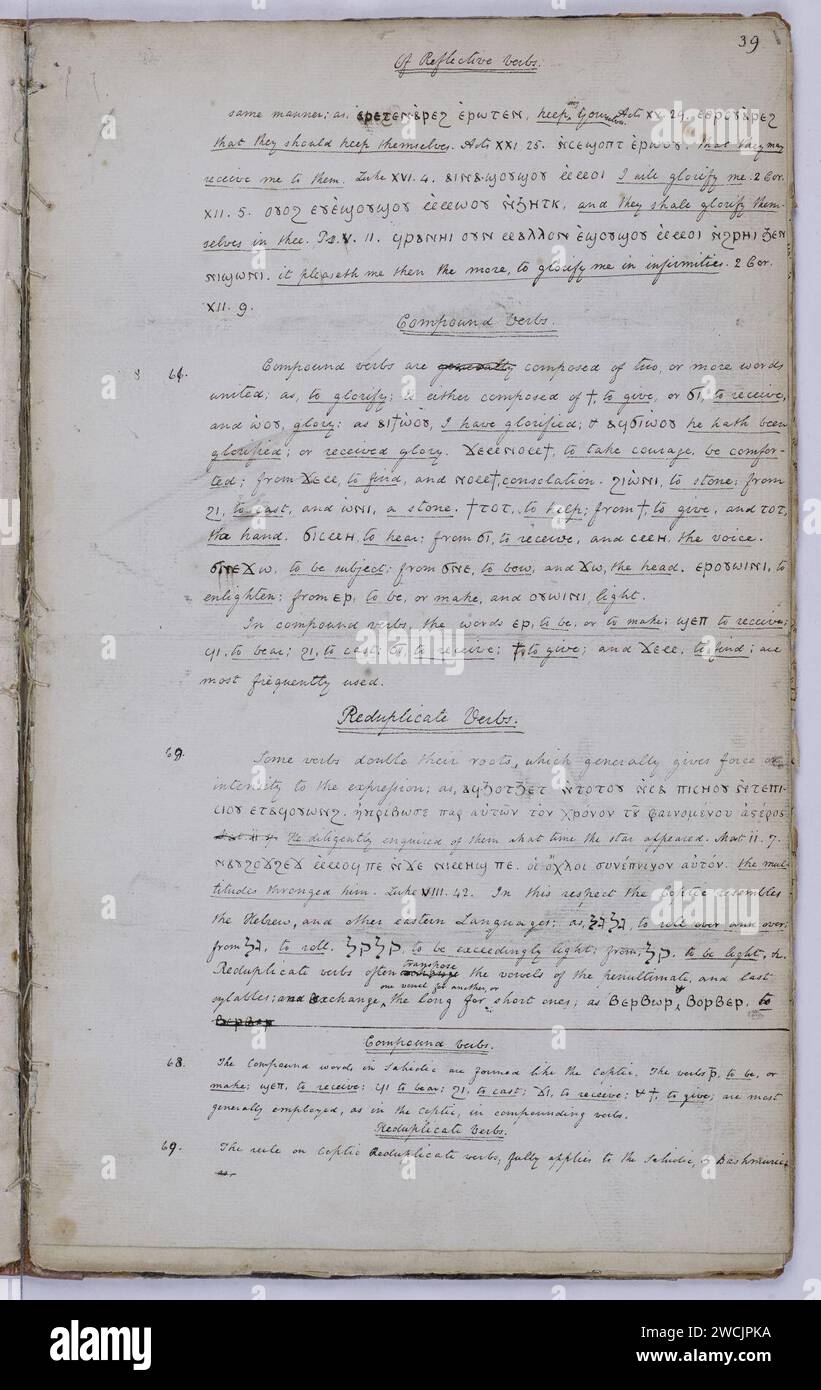 39
Of Reflective Verbs.
same manner; as, ⲉⲣⲉⲧⲉⲛⲁⲣⲉϩ ⲉⲣⲱⲧⲉⲛ, keep Acts XV. 29. ⲉⲑⲣⲟⲩⲁⲣⲉϩ
that they should keep themselves. Acts XXI 25. ⲛⲥⲉϣⲟⲡⲧ ⲉⲣⲱⲟⲩ. that they may
receive me to them. Luke XVI. 4. ⲁⲓⲛⲁϣⲟⲩϣⲟⲩ ⲙⲙⲟⲓ I will glorify me. 2 Cor.
XII. 5. ⲟⲩⲟϩ ⲉⲩⲉϣⲟⲩϣⲟⲩ ⲙⲙⲱⲟⲩ ⲛϧⲏⲧⲕ, and they shall glorify them-
selves in thee. Ps. V. 11. ϥⲣⲁⲛⲏⲓ ⲟⲩⲛ ⲙⲁⲗⲗⲟⲛ ⲉϣⲟⲩϣⲟⲩ ⲙⲙⲟⲓ ⲛϩⲣⲏⲓ ϧⲉⲛ
ⲛⲓϣⲱⲛⲓ. it pleaseth me then the more, to glorify me in infirmities. 2 Cor.
XII. 9.
Compound Verbs.
Compound verbs are generally composed of two, or more words
united; as, to glorify; is either composed of ϯ, to give, or ϭⲓ, to receive,
and ⲱⲟⲩ, glory: as ⲁⲓϯⲱⲟⲩ, I have glorified; & ⲁϥϭⲓⲱⲟⲩ he hath been
glorified; or received glory. ϫⲉⲙⲛⲟⲙϯ, to take courage, be comfor-
ted; from ϫⲉⲙ, to find, and ⲛⲟⲙϯ, consolation. ϩⲓⲱⲛⲓ, to stone; from
ϩⲓ, to cast, and ⲱⲛⲓ, a stone. ϯⲧⲟⲧ, to help; from ϯ, to give, and ⲧⲟⲧ,
the hand. ϭⲓⲥⲙⲏ, to hear; from ϭⲓ, to receive, and ⲥⲙⲏ, the voice.
ϭⲛⲉϫⲱ, to be subject; from ϭⲛⲉ, to bow, and ϫⲱ, the head. ⲉⲣⲟⲩⲱⲓⲛⲓ, to
enlighten; from ⲉⲣ, to be, or make, and ⲟⲩⲱⲓⲛⲓ, light.
In compound verbs, the words ⲉⲣ, to be, or to make; ϣⲉⲡ to receive;
ϥⲓ, to bear; ϩⲓ, to cast; ϭⲓ, to receive; ϯ, to give; and ϫⲉⲙ, to find; are
most frequently used.
Reduplicate Verbs.
69. Some verbs double their roots, which generally gives force or
intensity to the expression; as, ⲁϥϧⲟⲧϧⲉⲧ ⲛⲧⲟⲧⲟⲩ ⲛⲥⲁ ⲡⲓⲥⲏⲟⲩ ⲛⲧⲉⲡⲓ-
ⲥⲓⲟⲩ ⲉⲧⲁϥⲟⲩⲱⲛϩ. ἠκρίβωσε παρ αὐτῶν τὸν χρόνον τοῦ φαινομένου ἀστέρος
He diligently enquired of them what time the star appeared. Mat II. 7.
ⲛⲁⲩϩⲟϫϩⲉϫ ⲙⲙⲟϥ ⲡⲉ ⲛϫⲉ ⲛⲓⲙⲏϣ ⲡⲉ. οἱ ὄχλοι συνέπνιγον αὐτόν. the mul-
titudes thronged him. Luke VIII. 42. In this respect the Coptic resembles
the Hebrew, and other eastern Languages; as, גלגל, to roll over and over;
from גל, to roll. קלקל, to be exceedingly light; from, קל, to be light, &c.
Reduplicate verbs often transpose the vowels of the penultimate, and last
one vowel for another, or
sylables; and exchange the long for short ones; as ⲃⲉⲣⲃⲱⲣ, & ⲃⲟⲣⲃⲉⲣ, to
Compound Verbs.
68. The Compound words in Sahidic are formed like the Coptic. The verbs ⲣ̄, to be, or
make; ϣⲉⲡ, to receive; ϥⲓ to bear; ϩⲓ, to cast; ϫⲓ, to receive; & ϯ, to give; are most
generally employed, as in the Coptic, in compounding verbs.
Reduplicate Verbs.
69. The rule on Coptic Reduplicate verbs, fully applies to the Sahidic, & Bashmuric
alamy
Image ID: 2WCJPKA
www.alamy.com